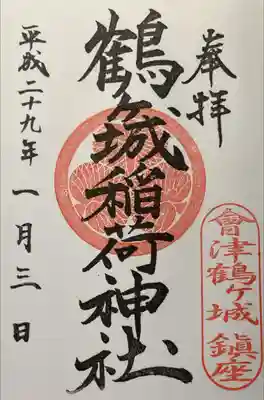 奉拝
會津鶴ヶ城鎮座
鶴ヶ城稲荷神社
平成二十九年一月三日